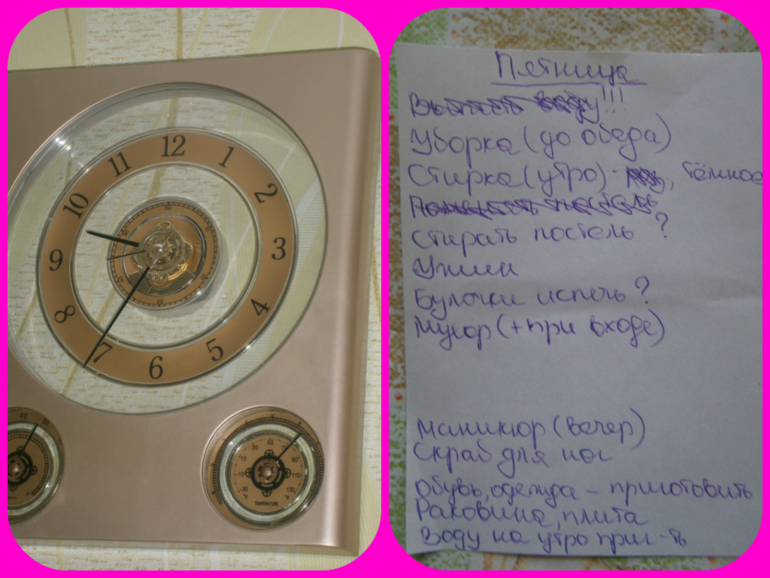 12
1
2
3
4
5
6
7
8
9
10
11
TEMPERATURE
Пятница
воду!!!
Уборка (до обеда)
Стирка (утро) - , тёмное
Стирать постель ?
Булочки испечь ?
Мусор (+при входе)
Маникюр (вечер)
Скраб для ног
Обувь, одежда – приготовить
Раковина, плита
Воду на утро приг-ть